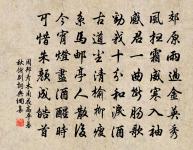 郊原雨過金英秀
風掃霜威寒入袖
感君一曲斷腸歌
勸我十分和淚酒
古道塵清榆柳瘦
繫馬郵亭人散後
今宵燈盡酒醒時
可惜朱顏成皓首
周邦彥木蘭花高平暮
秋餞別詞典網集